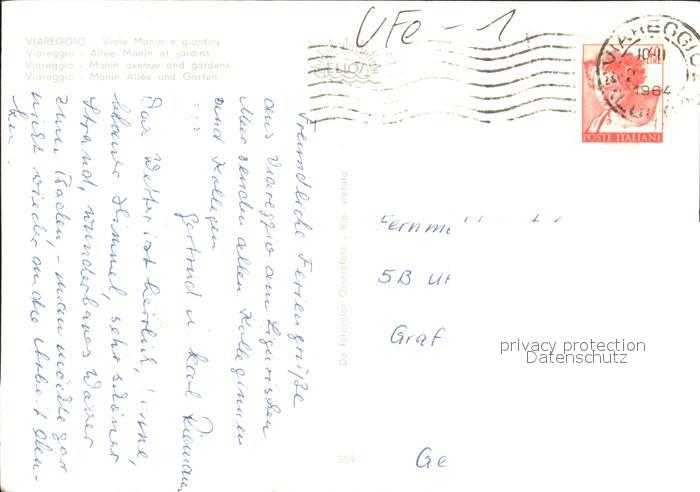 UFe - 1
VIAREGGIO - Viale Manin e giardini
Viareggio - Allée Manin et jardins
Viareggio - Manin avenue and gardens
Viareggio - Manin Allee und Gärten
VIAREGGIO
1964
40 LIRE
POSTE ITALIANE
Freundliche Feriengrüße
aus Viareggio am Ligurischen
Meer senden allen Kolleginnen
und Kollegen
Gertrud u. Karl
Das Wetter ist herrlich,
blauer Himmel, sehr schöner
Strand, wunderbares Wasser
zum Baden, - man möchte gar
nicht wieder an die Arbeit den-
ken.
Da fotocolor Omniafoto - Rip. vietata
359
Fernm
5B
Graf
Ge
privacy protection
Datenschutz